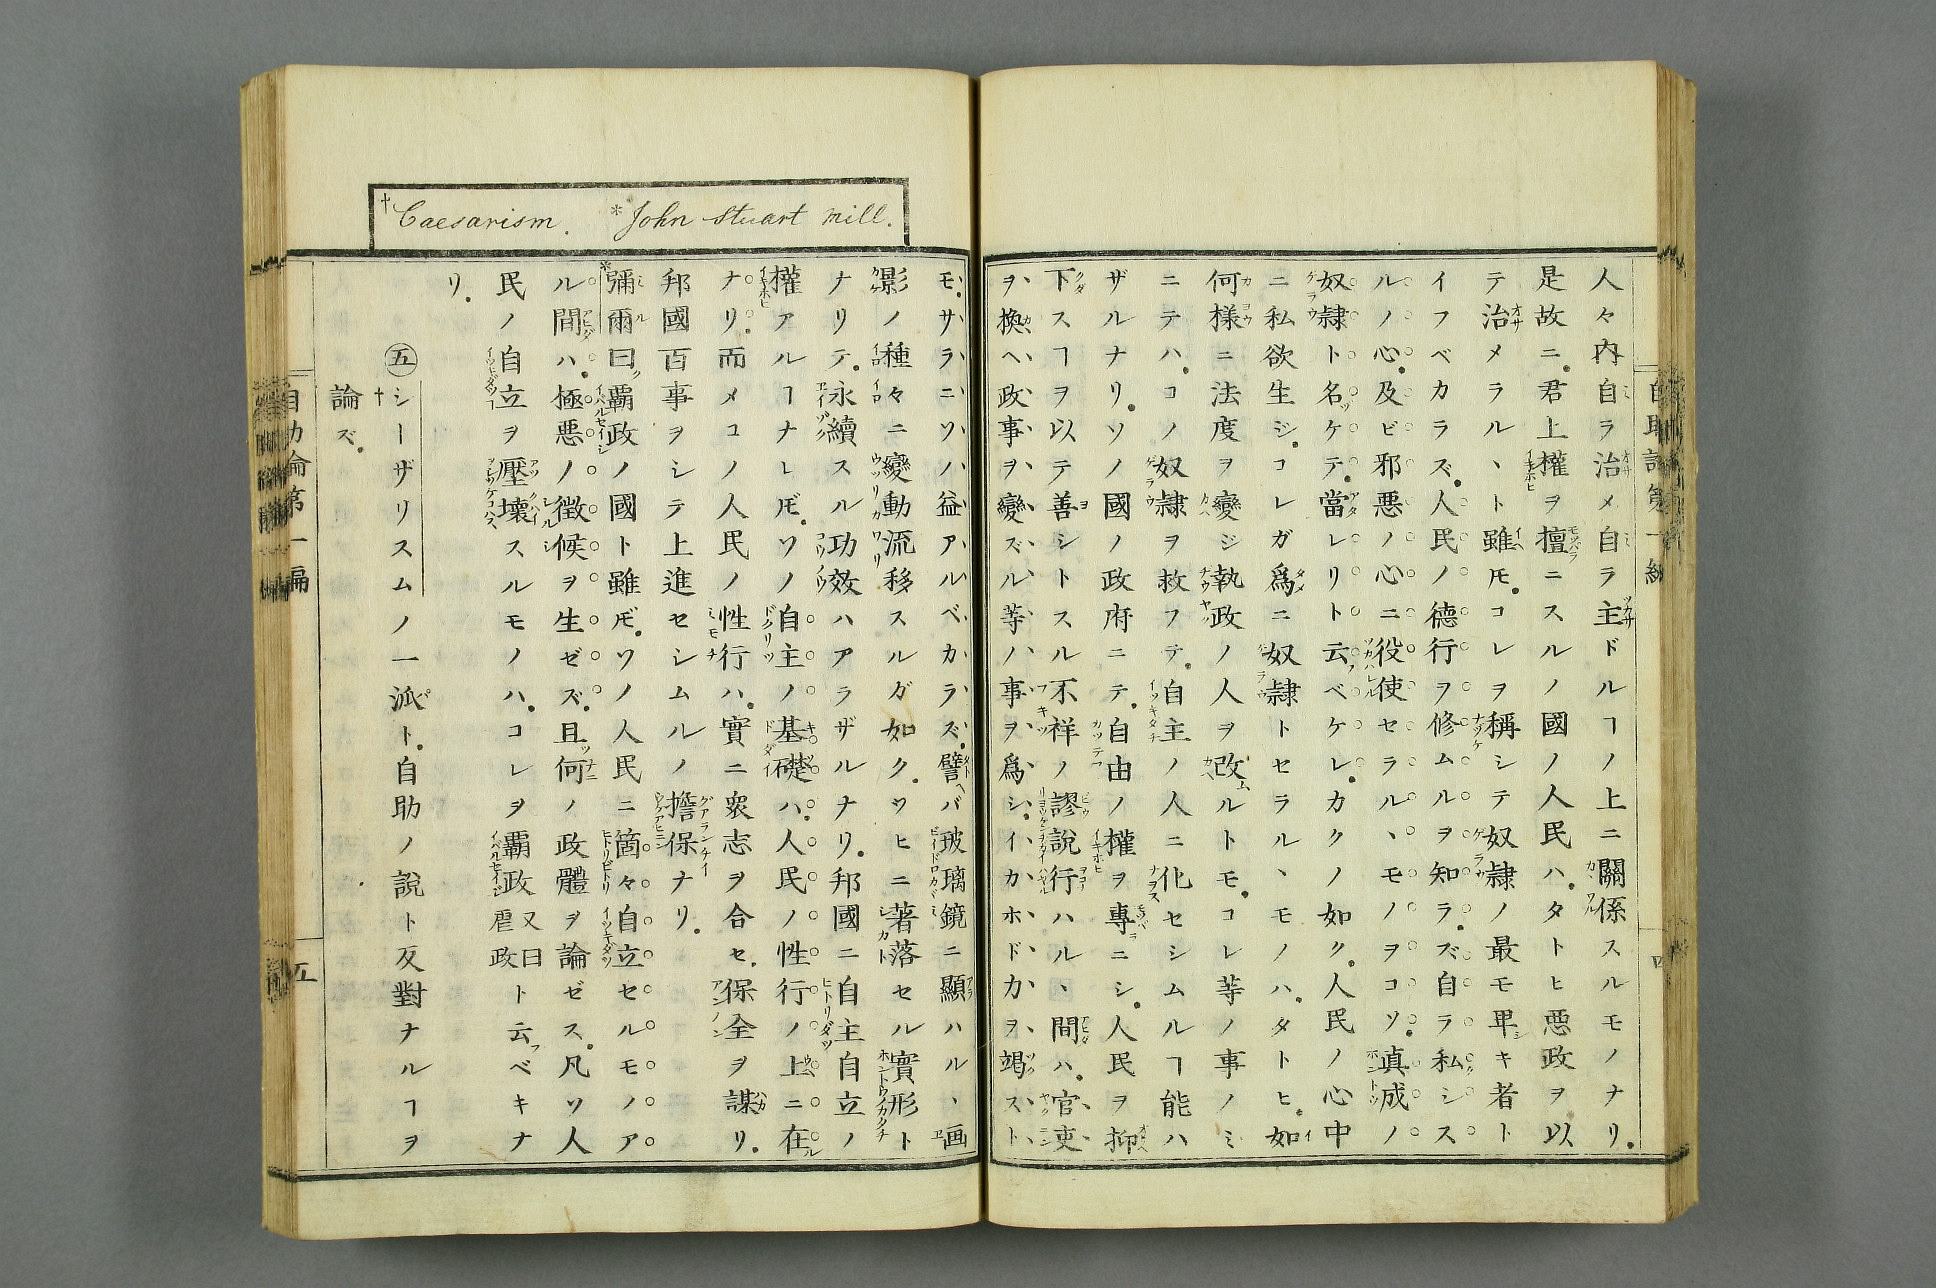 人々内自ラ治メ自ラ主ドルヿノ上ニ關係スルモノナリ。
是故ニ。君上權ヲ擅ニスルノ國ノ人民ハ。タトヒ惡政ヲ以
テ治メラル、ト雖𪜈。コレヲ稱シテ奴隷ノ最モ卑キ者ト
イフベカラズ。人民ノ德行ヲ修ムルヲ知ラズ。自ラ私シス
ルノ心。及ビ邪惡ノ心ニ役使セラル、モノヲコソ。真成ノ
奴隷ト名ケテ。當レリト云ベケレ。カクノ如ク。人民ノ心中
ニ私欲生シ。コレガ爲ニ奴隷トセラル、モノハ。タトヒ。如
何樣ニ法度ヲ變ジ執政ノ人ヲ改ムルトモ。コレ等ノ事ノミ
ニテハ。コノ奴隷ヲ救フテ。自主ノ人ニ化セシムルヿ能ハ
ザルナリ。ソノ國ノ政府ニテ。自由ノ權ヲ專ニシ。人民ヲ抑
下スルヿヲ以テ善シトスル不祥ノ謬說行ハル、間ハ。官吏
ヲ換ヘ政事ヲ變ズル等ノ事ヲ爲シ。イカホド力ヲ竭スト
Caesarism. * John Stuart Mill.
モ。サラニソノ益アルベカラズ。譬ヘバ玻璃鏡ニ顯ハル、画
影ノ種々ニ變動流移スルガ如ク。ツヒニ著落セル實形ト
ナリテ。永續スル功效ハアラザルナリ。邦國ニ自主自立ノ
權アルヿナレ𪜈。ソノ自主ノ基礎ハ。人民ノ性行ノ上ニ在
ナリ。而メコノ人民ノ性行ハ。實ニ衆志ヲ合セ。保全ヲ謀リ。
邦國百事ヲシテ上進セシムルノ擔保ナリ。
彌爾曰覇政ノ國ト雖𪜈。ソノ人民ニ箇々自立セルモノア
ル間ハ。極惡ノ徴候ヲ生ゼズ。且何ノ政體ヲ論ゼス。凡ソ人
民ノ自立ヲ壓壞スルモノハ。コレヲ覇政又曰虐政ト云ベキナ
リ。
㊄シーザリスムノ一派ト。自助ノ說ト反對ナルヿヲ
論ズ。
自助論第一編
五